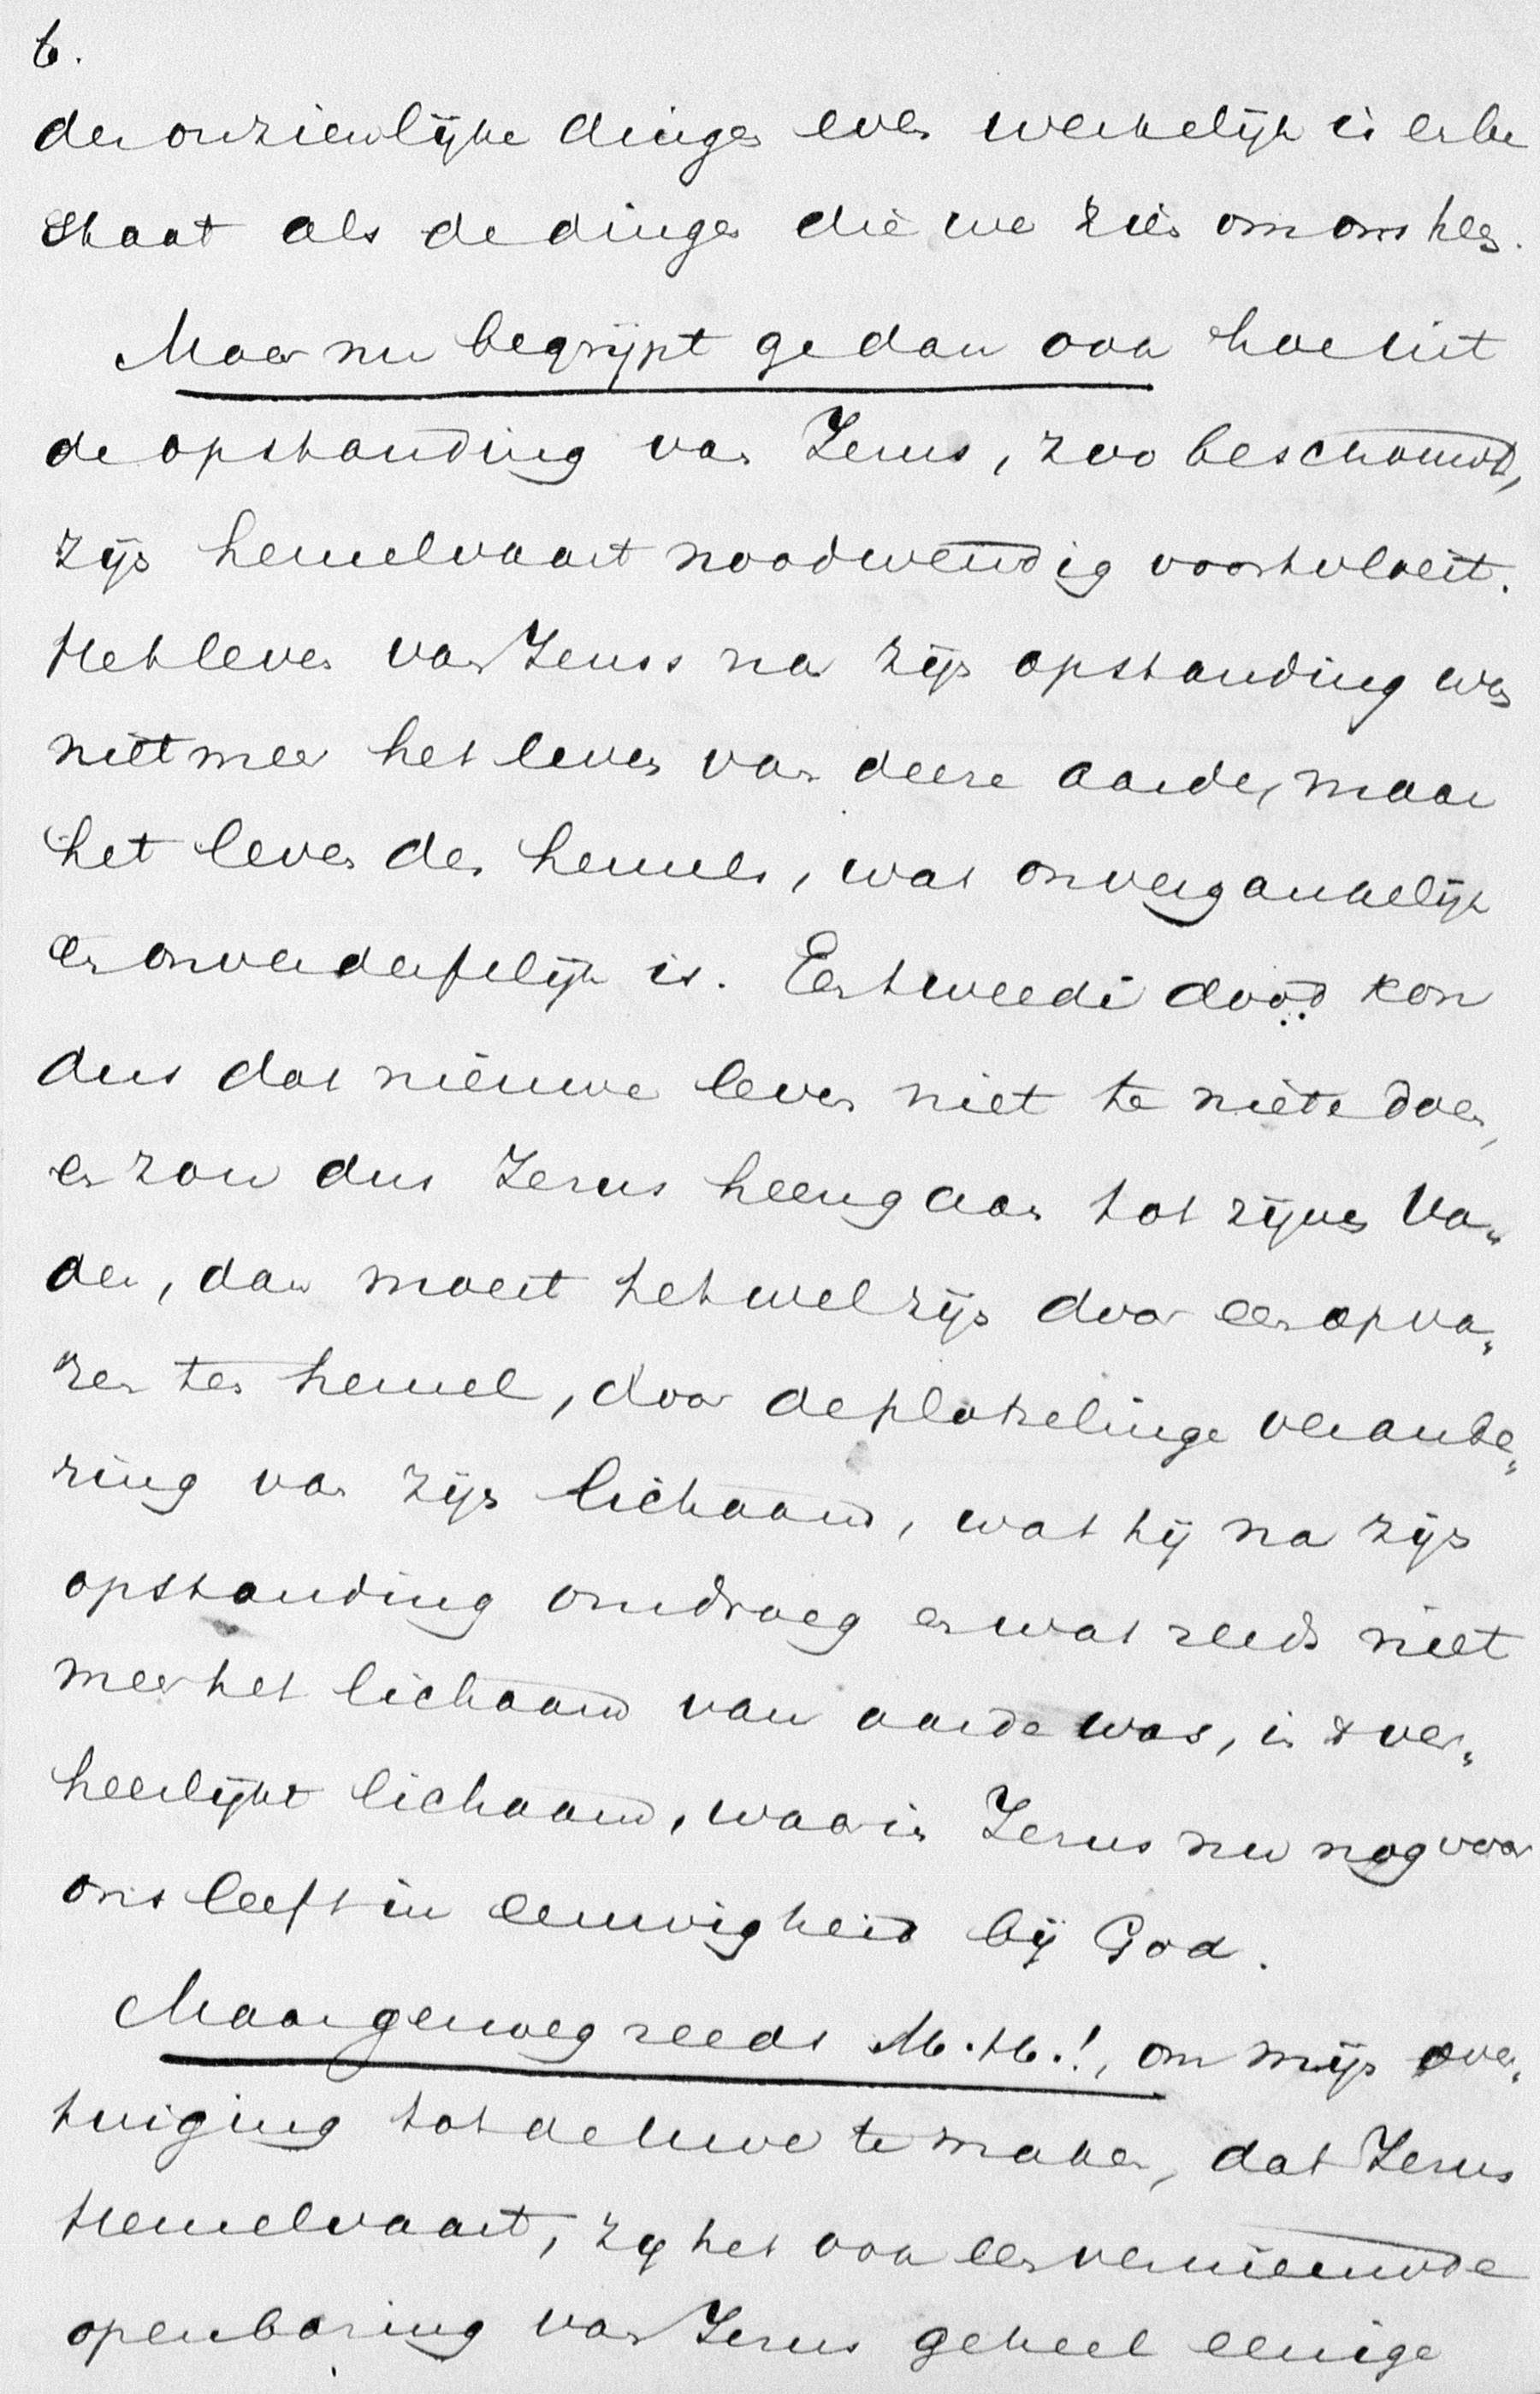 6.
der onzienlijke dingen even werkelijk is en be
staat als de dingen die we zien om ons heen.
Maar nu begrijpt ge dan ook hoe uit
de opstanding van Jezus, zoo beschouwd,
zijn hemelvaart noodwendig voortvloeit.
Het leven van Jezus na zijn opstanding was
niet meer het leven van deze aarde, maar
het leven des hemels, wat onvergankelijk
en onverderfelijk is. Een tweede dood kon
dus dat nieuwe leven niet te niete doen,
en zou dus Jezus heengaan tot zijnen Va„
der, dan moest het wel zijn door een opva„
ren ten hemel, door de plotselinge verande„
ring van zijn lichaam, wat hij na zijn
opstanding omdroeg en wat reeds niet
meer het lichaam van aarde was, in 't ver„
heerlijkt lichaam, waarin Jezus nu nog voor
ons leeft in eeuwigheid bij God.
Maar genoeg reeds M.H.!, om mijn over„
tuiging tot de uwe te maken, dat Jezus
Hemelvaart, zij het ook een vernieuwde
openbaring van Jezus geheel eenige